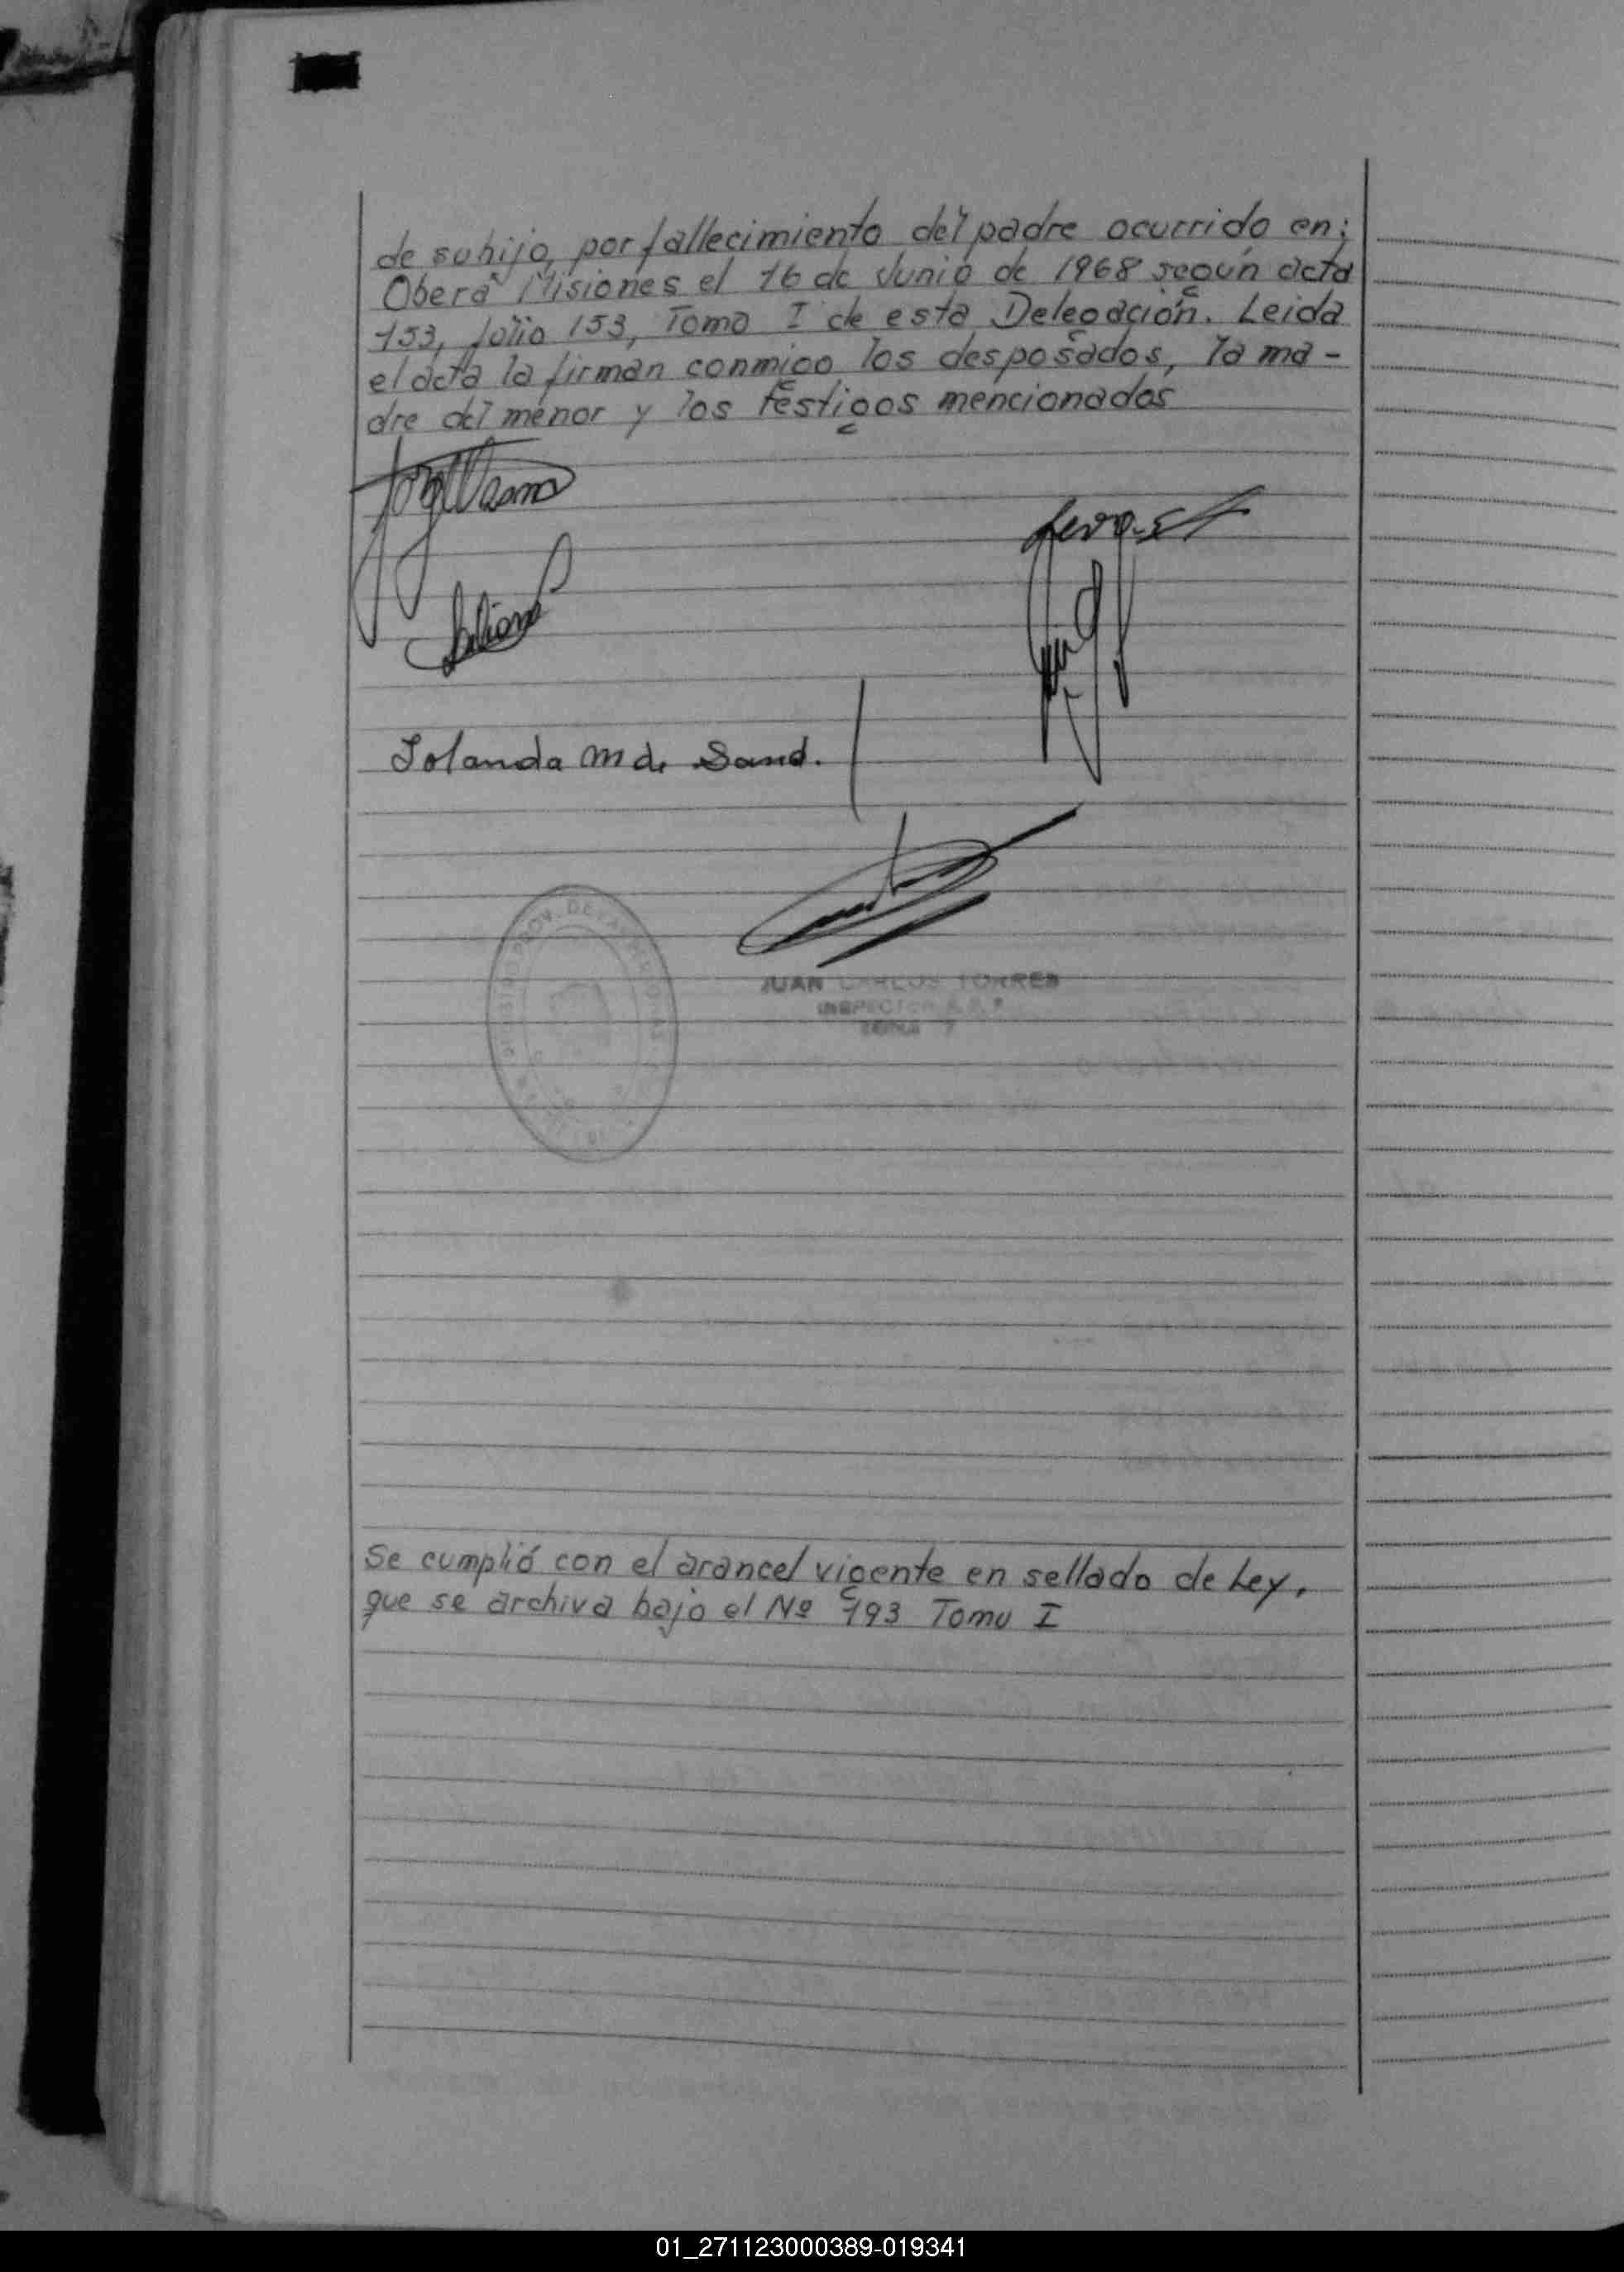 de su hijo, por fallecimiento del padre ocurrido en;
Oberá Misiones el 16 de Junio de 1968 según acta
153, folio 153, Tomo I de esta Delegación. Leida
el acta la firman conmigo los desposados, la ma-
dre del menor y los testigos mencionados
Iolanda M de Sand.
JUAN CARLOS TORRES
INSPECTOR
Se cumplió con el arancel vigente en sellado de Ley,
que se archiva bajo el Nº 193 Tomo I
01_271123000389-019341